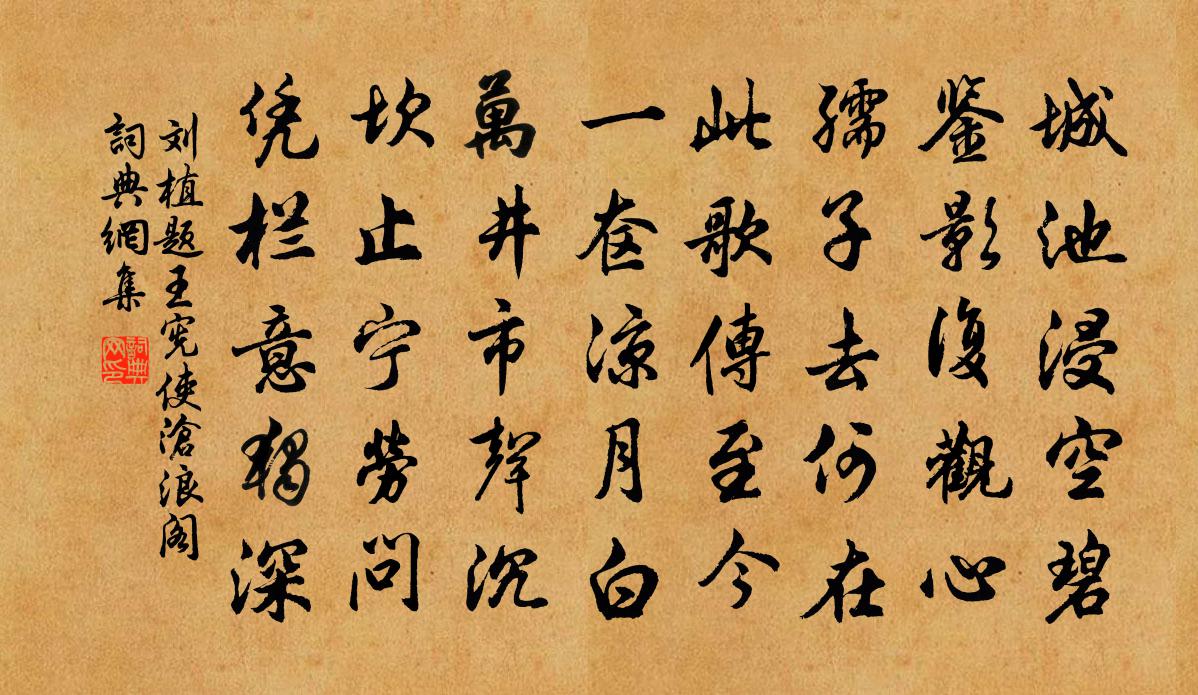 城池浸空碧
鉴影復觀心
孺子去何在
此歌傳至今
一奁凉月白
萬井市聲沉
坎止宁勞问
凭栏意獨深
刘植题王宪使滄浪阁
詞典網集
詞典网印